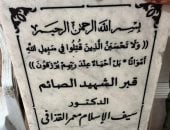 بسم الله الرحمن الرحيم
ولا تحسبن الذين قتلوا في سبيل الله
أمواتاً بل أحياء عند ربهم يرزقون
قبر الشهيد الصائم
الدكتور
سيف الإسلام معمر القذافي